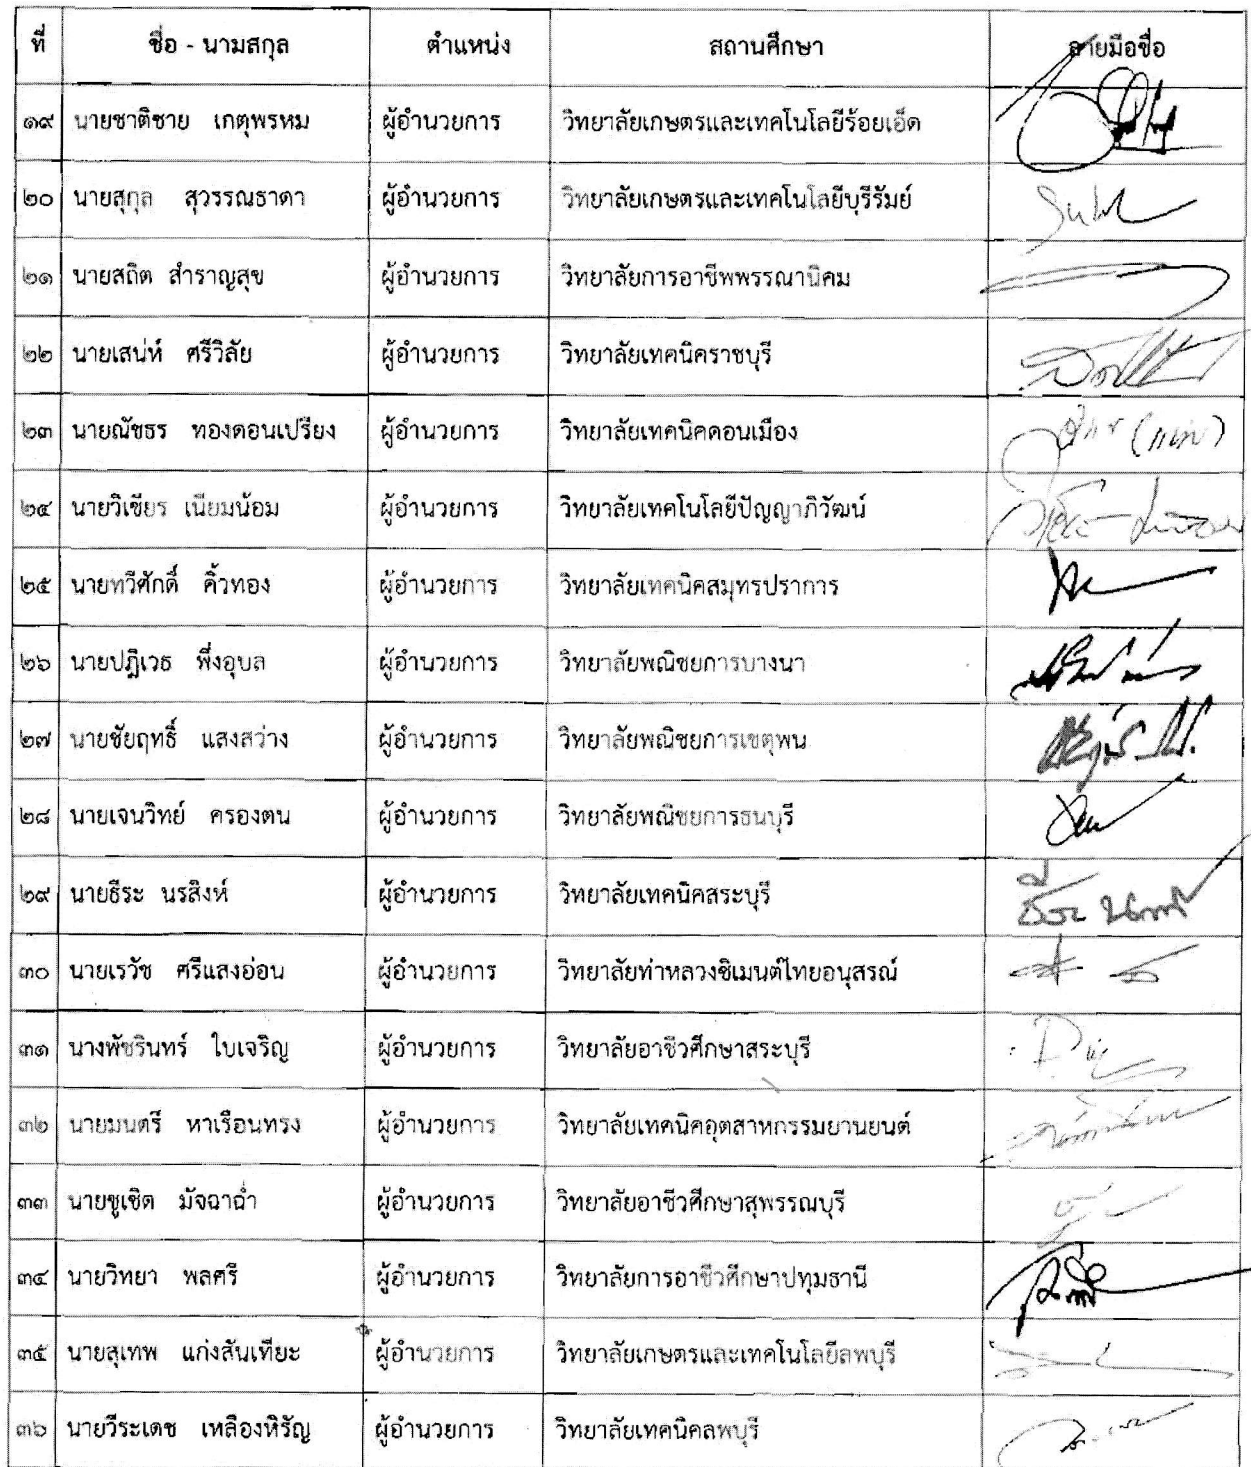 ที่ ชื่อ - นามสกุล ตำแหน่ง สถานศึกษา ลายมือชื่อ
๑๙ นายชาติชาย เกตุพรหม ผู้อำนวยการ วิทยาลัยเกษตรและเทคโนโลยีร้อยเอ็ด
๒๐ นายสุกุล สุวรรณธาดา ผู้อำนวยการ วิทยาลัยเกษตรและเทคโนโลยีบุรีรัมย์
๒๑ นายสถิต สำราญสุข ผู้อำนวยการ วิทยาลัยการอาชีพพรรณานิคม
๒๒ นายเสน่ห์ ศรีวิลัย ผู้อำนวยการ วิทยาลัยเทคนิคราชบุรี
๒๓ นายณัชธร ทองดอนเปรียง ผู้อำนวยการ วิทยาลัยเทคนิคดอนเมือง
๒๔ นายวิเชียร เนียมน้อม ผู้อำนวยการ วิทยาลัยเทคโนโลยีปัญญาภิวัฒน์
๒๕ นายทวีศักดิ์ คิ้วทอง ผู้อำนวยการ วิทยาลัยเทคนิคสมุทรปราการ
๒๖ นายปฏิเวธ พึ่งอุบล ผู้อำนวยการ วิทยาลัยพณิชยการบางนา
๒๗ นายชัยฤทธิ์ แสงสว่าง ผู้อำนวยการ วิทยาลัยพณิชยการเชตุพน
๒๘ นายเจนวิทย์ ครองตน ผู้อำนวยการ วิทยาลัยพณิชยการธนบุรี
๒๙ นายธีระ นรสิงห์ ผู้อำนวยการ วิทยาลัยเทคนิคสระบุรี
๓๐ นายเรวัช ศรีแสงอ่อน ผู้อำนวยการ วิทยาลัยท่าหลวงซิเมนต์ไทยอนุสรณ์
๓๑ นางพัชรินทร์ ใบเจริญ ผู้อำนวยการ วิทยาลัยอาชีวศึกษาสระบุรี
๓๒ นายมนตรี หาเรือนทรง ผู้อำนวยการ วิทยาลัยเทคนิคอุตสาหกรรมยานยนต์
๓๓ นายชูเชิด มัจฉาฉ่ำ ผู้อำนวยการ วิทยาลัยอาชีวศึกษาสุพรรณบุรี
๓๔ นายวิทยา พลศรี ผู้อำนวยการ วิทยาลัยการอาชีวศึกษาปทุมธานี
๓๕ นายสุเทพ แก่งสันเทียะ ผู้อำนวยการ วิทยาลัยเกษตรและเทคโนโลยีลพบุรี
๓๖ นายวีระเดช เหลืองหิรัญ ผู้อำนวยการ วิทยาลัยเทคนิคลพบุรี